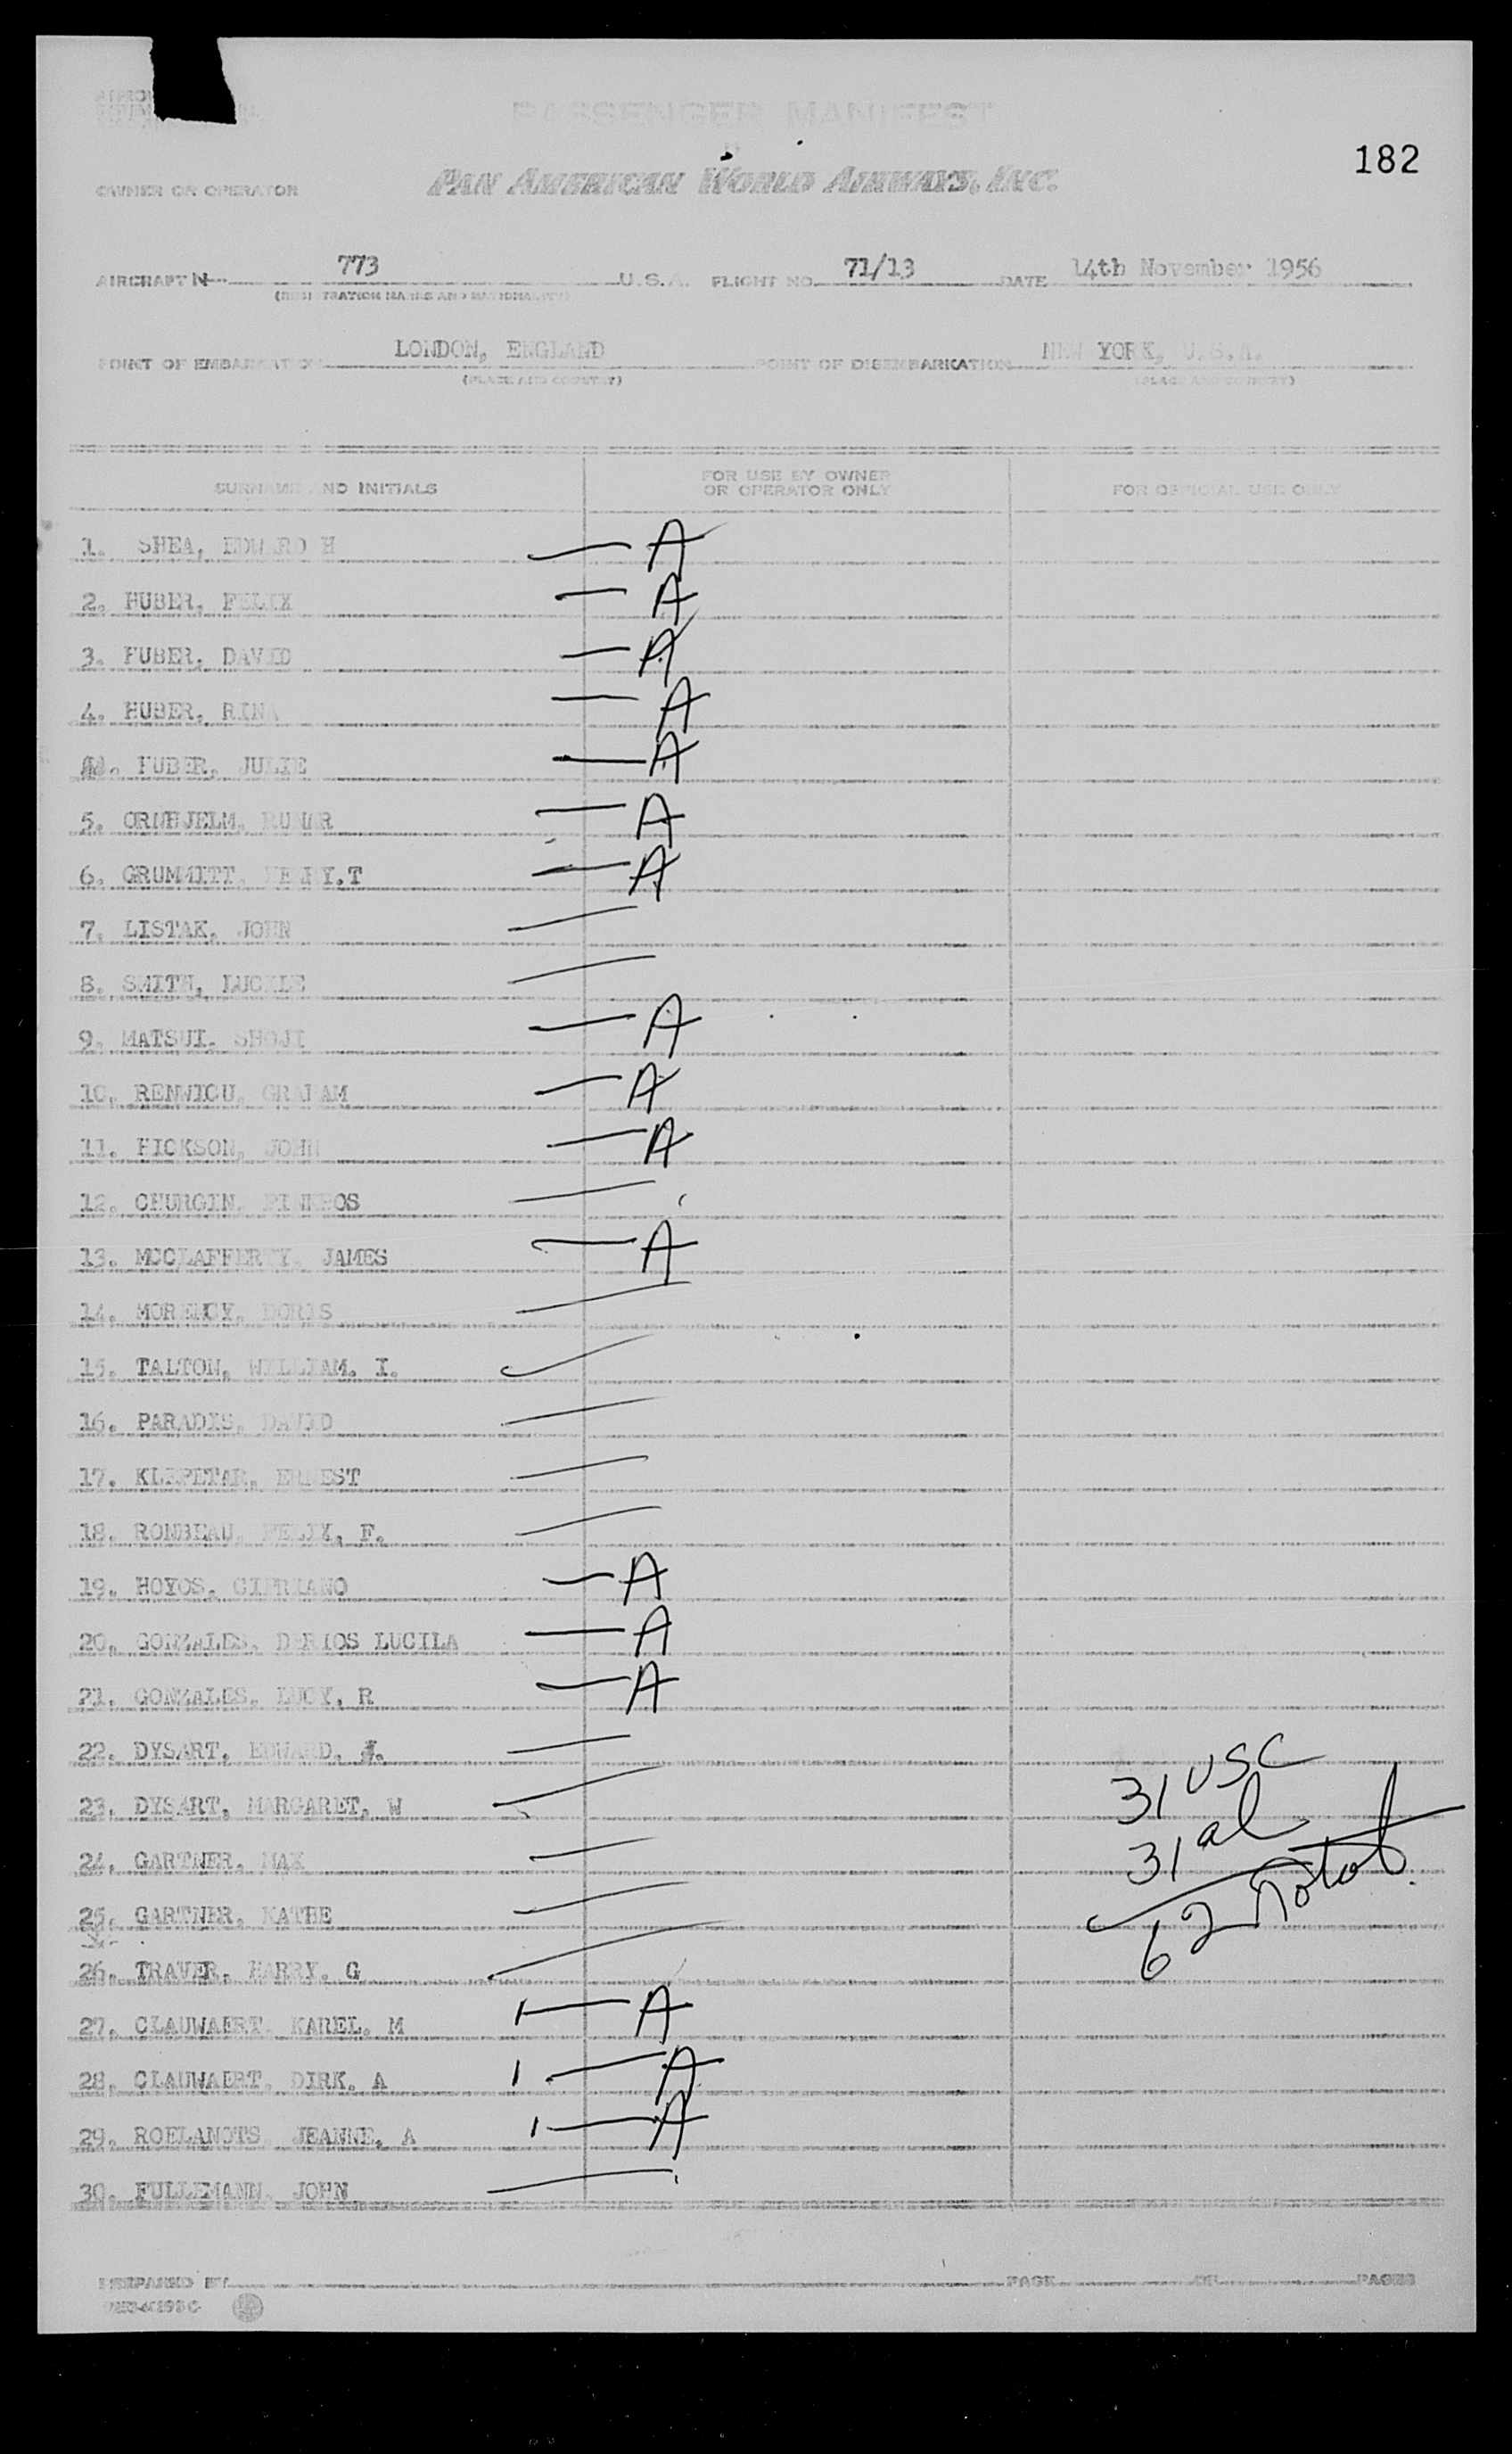 PASSENGER MANIFEST
182
OWNER OR OPERATOR PAN AMERICAN WORLD AIRWAYS, INC.
AIRCRAFT N 773 U.S.A. FLIGHT NO. 71/13 DATE 14th November 1956
(REGISTRATION MARKS AND NATIONALITY)
POINT OF EMBARKATION LONDON, ENGLAND POINT OF DISEMBARKATION NEW YORK, U.S.A.
(PLACE AND COUNTRY) (PLACE AND COUNTRY)
SURNAME AND INITIALS FOR USE BY OWNER OR OPERATOR ONLY FOR OFFICIAL USE ONLY
1. SHEA, EDWARD H — A
2. HUBER, FELIX — A
3. HUBER, DAVID — A
4. HUBER, RINA — A
HUBER, JULIE — A
5. ORNHJELM, — A
6. GRUMMITT, HENRY.T — A
7. LISTAK, JOHN —
8. SMITH, LUCILE —
9. MATSUI, SHOJI — A
10. RENWICU, GRAHAM — A
11. HICKSON, JOHN — A
12. CHURGIN, PINKHOS —
13. MCCLAFFERTY, JAMES — A
14. MORENCY, DORIS —
15. TALTON, WILLIAM. I. ✓
16. PARADIS, DAVID —
17. KLEPETAR, ERNEST —
18. ROMBEAU, FELIX, F. —
19. HOYOS, CIPRIANO — A
20. GONZALES, DERIOS LUCILA — A
21. GONZALES, LUCY, R — A
22. DYSART, EDWARD, —
31 USC
23. DYSART, MARGARET, W —
31 al
24. GARTNER, MAX —
25. GARTNER, KATHE —
62 Total
26. TRAVER, HARRY, G —
27. CLAUWAERT, KAREL, M 1 — A
28. CLAUWAERT, DIRK, A 1 — A
29. ROELANDTS, JEANNE, A 1 — A
30. FULLEMANN, JOHN —
PREPARED BY PAGE OF PAGES